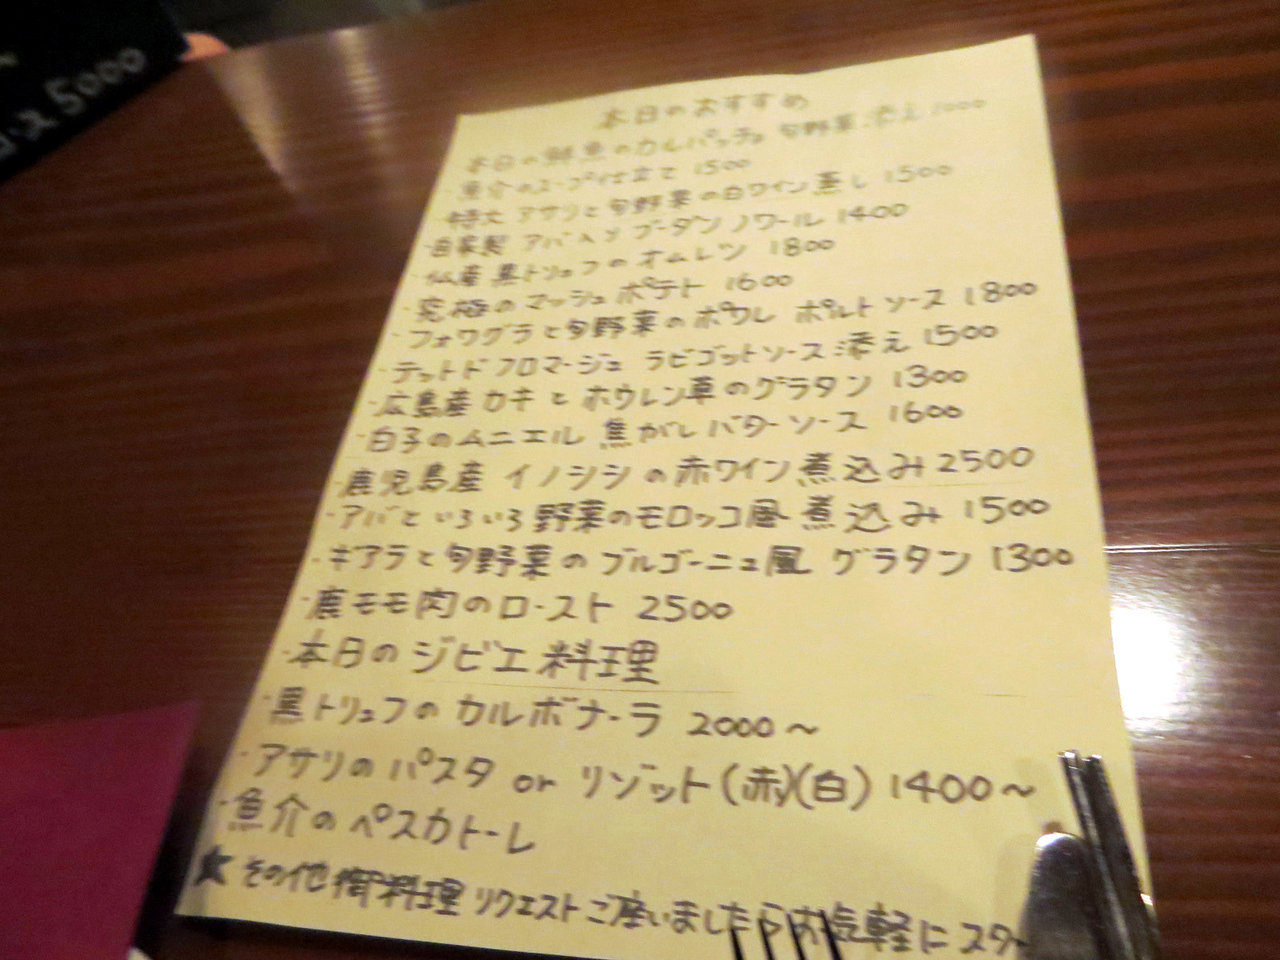 5000
本日のおすすめ
本日の鮮魚のカルパッチョ 旬野菜添え
魚介のスープ仕立て 1500
特大 アサリと旬野菜の白ワイン蒸し 1500
・自家製 ブーダンノワール 1400
・仏産 黒トリュフのオムレツ 1800
・究極のマッシュポテト 1600
・フォワグラと旬野菜のポワレ ポルトソース 1800
・テットドフロマージュ ラビゴットソース添え 1500
・広島産 カキとホウレン草のグラタン 1300
・白子のムニエル 焦がしバターソース 1600
・鹿児島産 イノシシの赤ワイン煮込み 2500
・アバといろいろ野菜のモロッコ風煮込み 1500
・ギアラと旬野菜のブルゴーニュ風 グラタン 1300
・鹿モモ肉のロースト 2500
・本日のジビエ料理
・黒トリュフのカルボナーラ 2000〜
・アサリのパスタ or リゾット(赤)(白) 1400〜
・魚介のペスカトーレ
★その他御料理リクエストご座いましたらお気軽にスタ